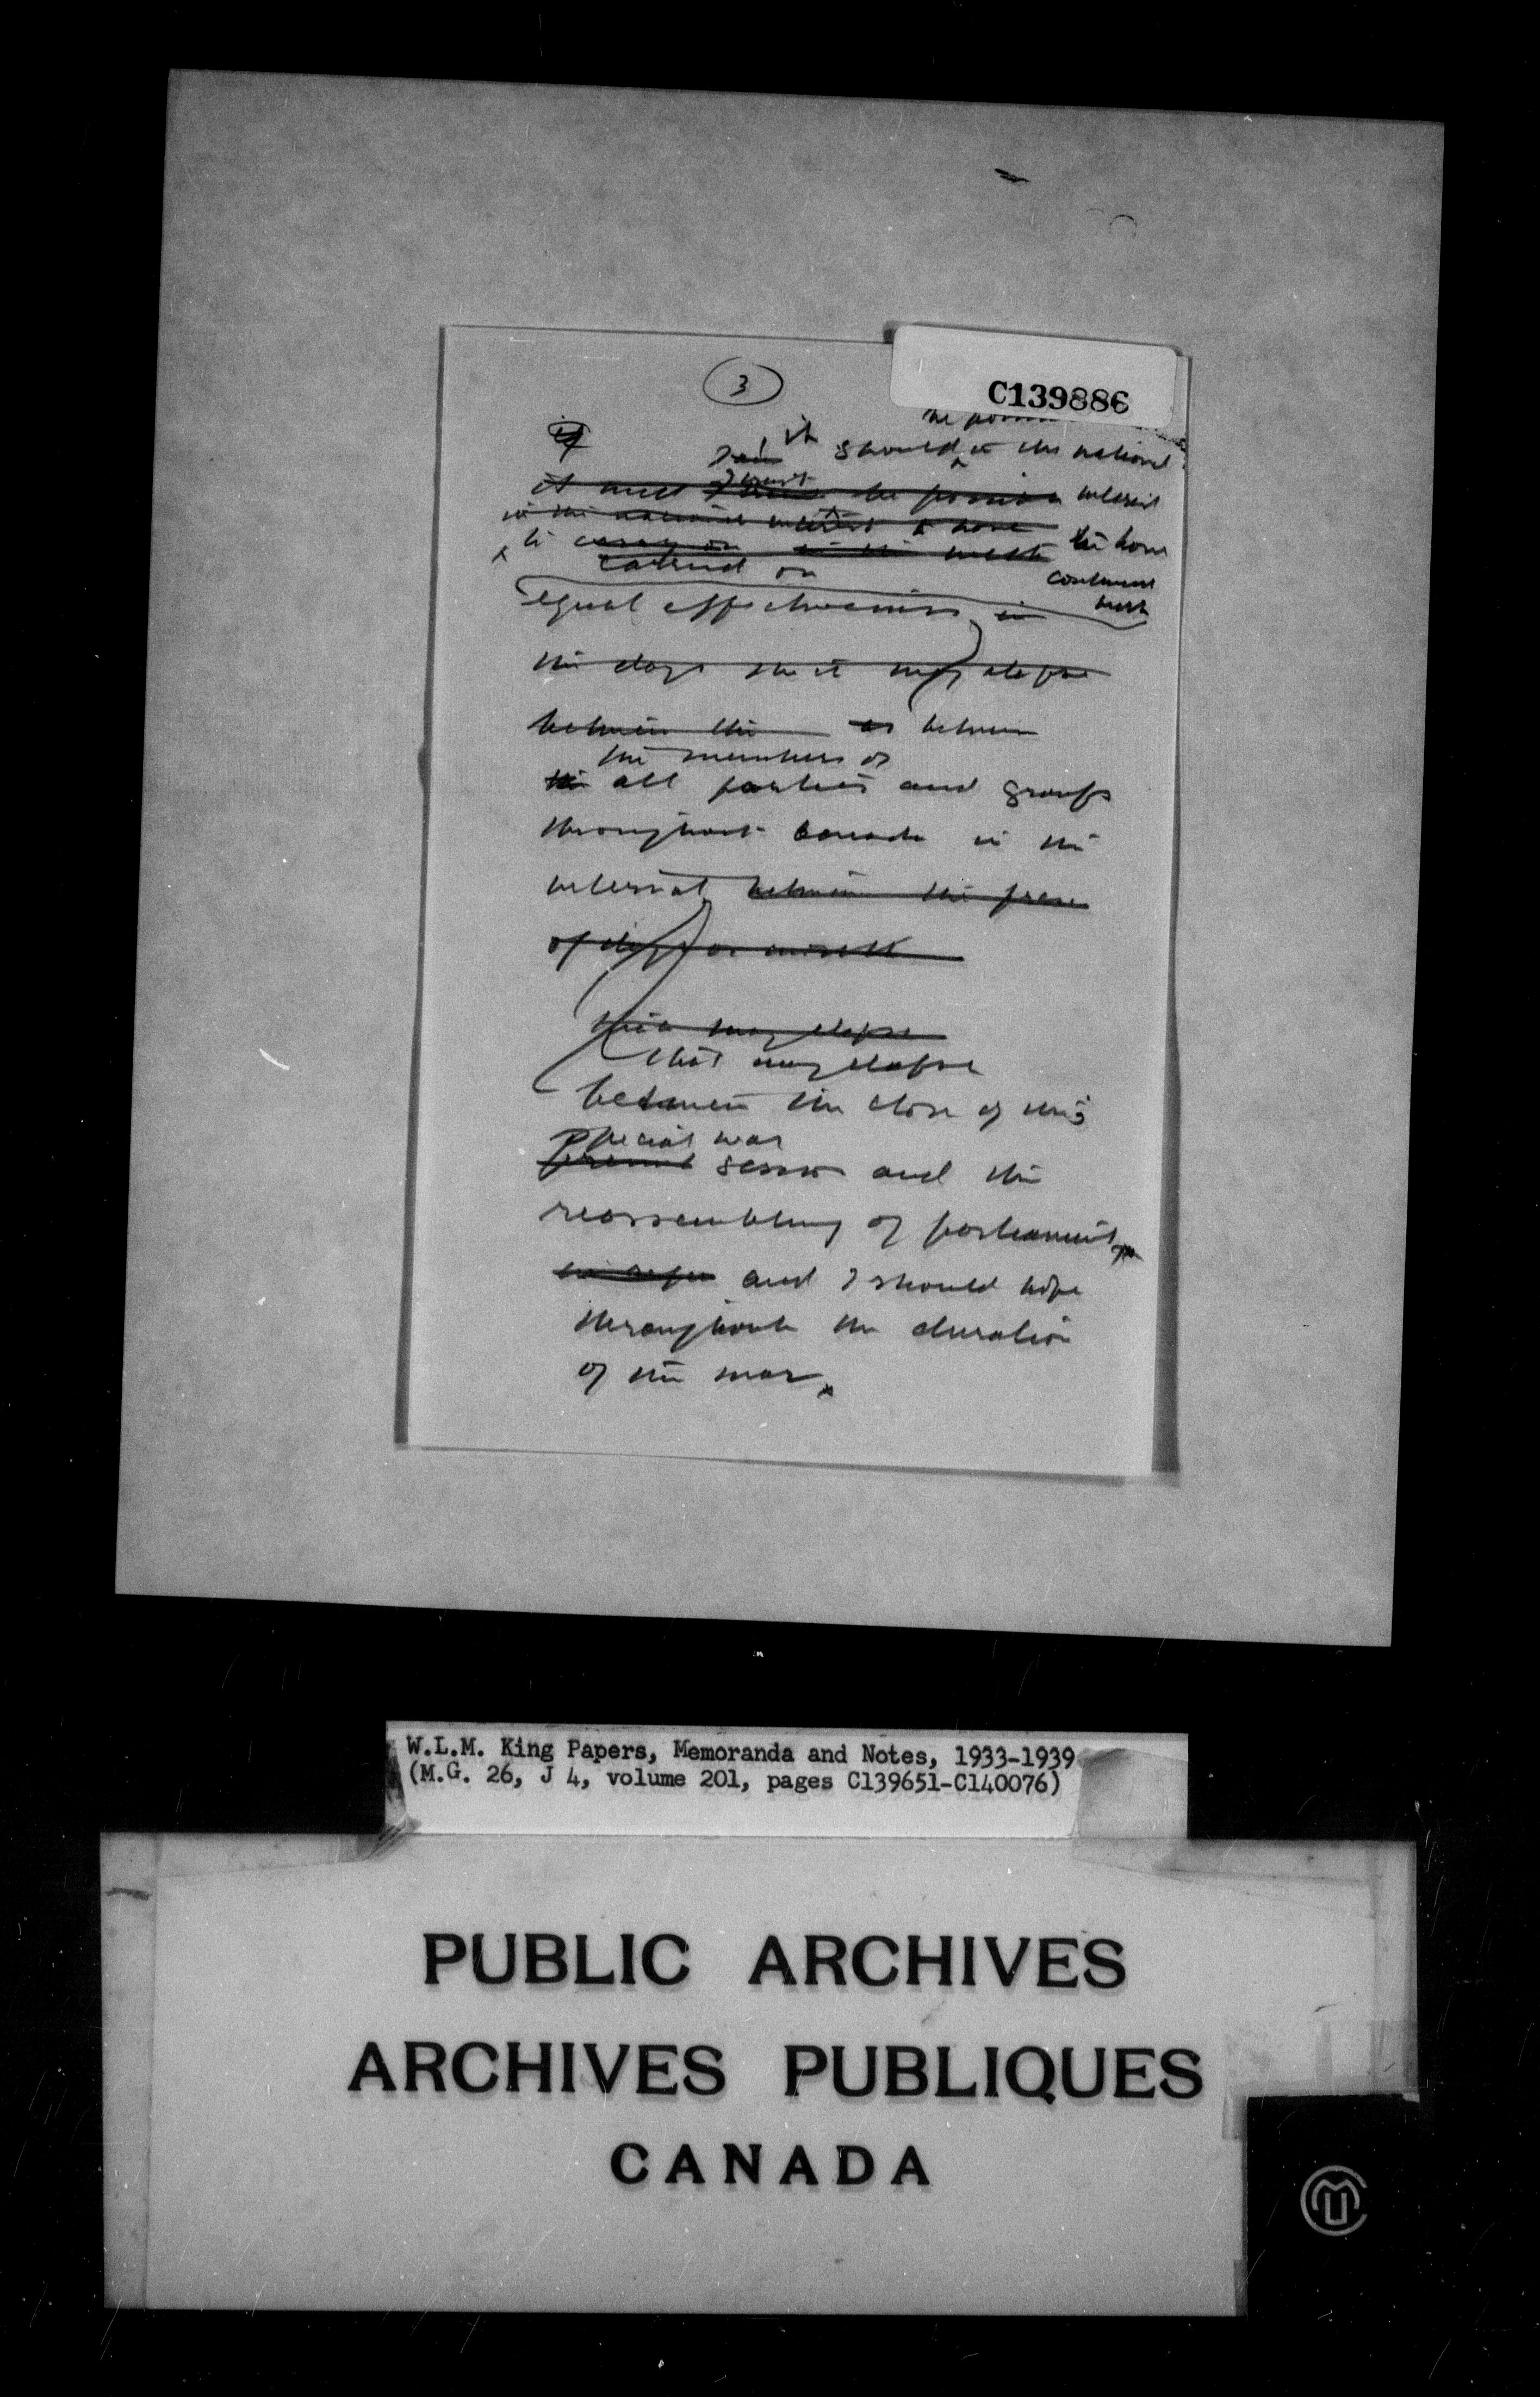 3
C139886
it should in the national
it will be possible interest
in the national interest to have to have
to carry on continued
carried on with
equal effectiveness in
the days that may elapse
between the or between
the members of
the all parties and groups
throughout Canada in the
interval between the
of days or
that may elapse
between the close of this
special war
present session and the
reassembling of parliament
and I should hope
throughout the duration
of the war.
W.L.M. King Papers, Memoranda and Notes, 1933-1939
(M.G. 26, J 4, volume 201, pages C139651-C140076)
PUBLIC ARCHIVES
ARCHIVES PUBLIQUES
CANADA